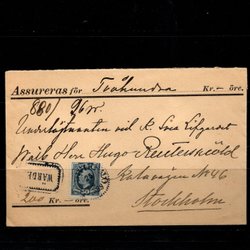 Assureras för Tvåhundra Kr. — öre.
880/96 gr.
Underlöjtnanten vid K. Svea Lifgardet
Wälb Herr Hugo Reuterskiöld
Kaptensgatan No 46
WARDE
200 Kr. — öre.
Stockholm